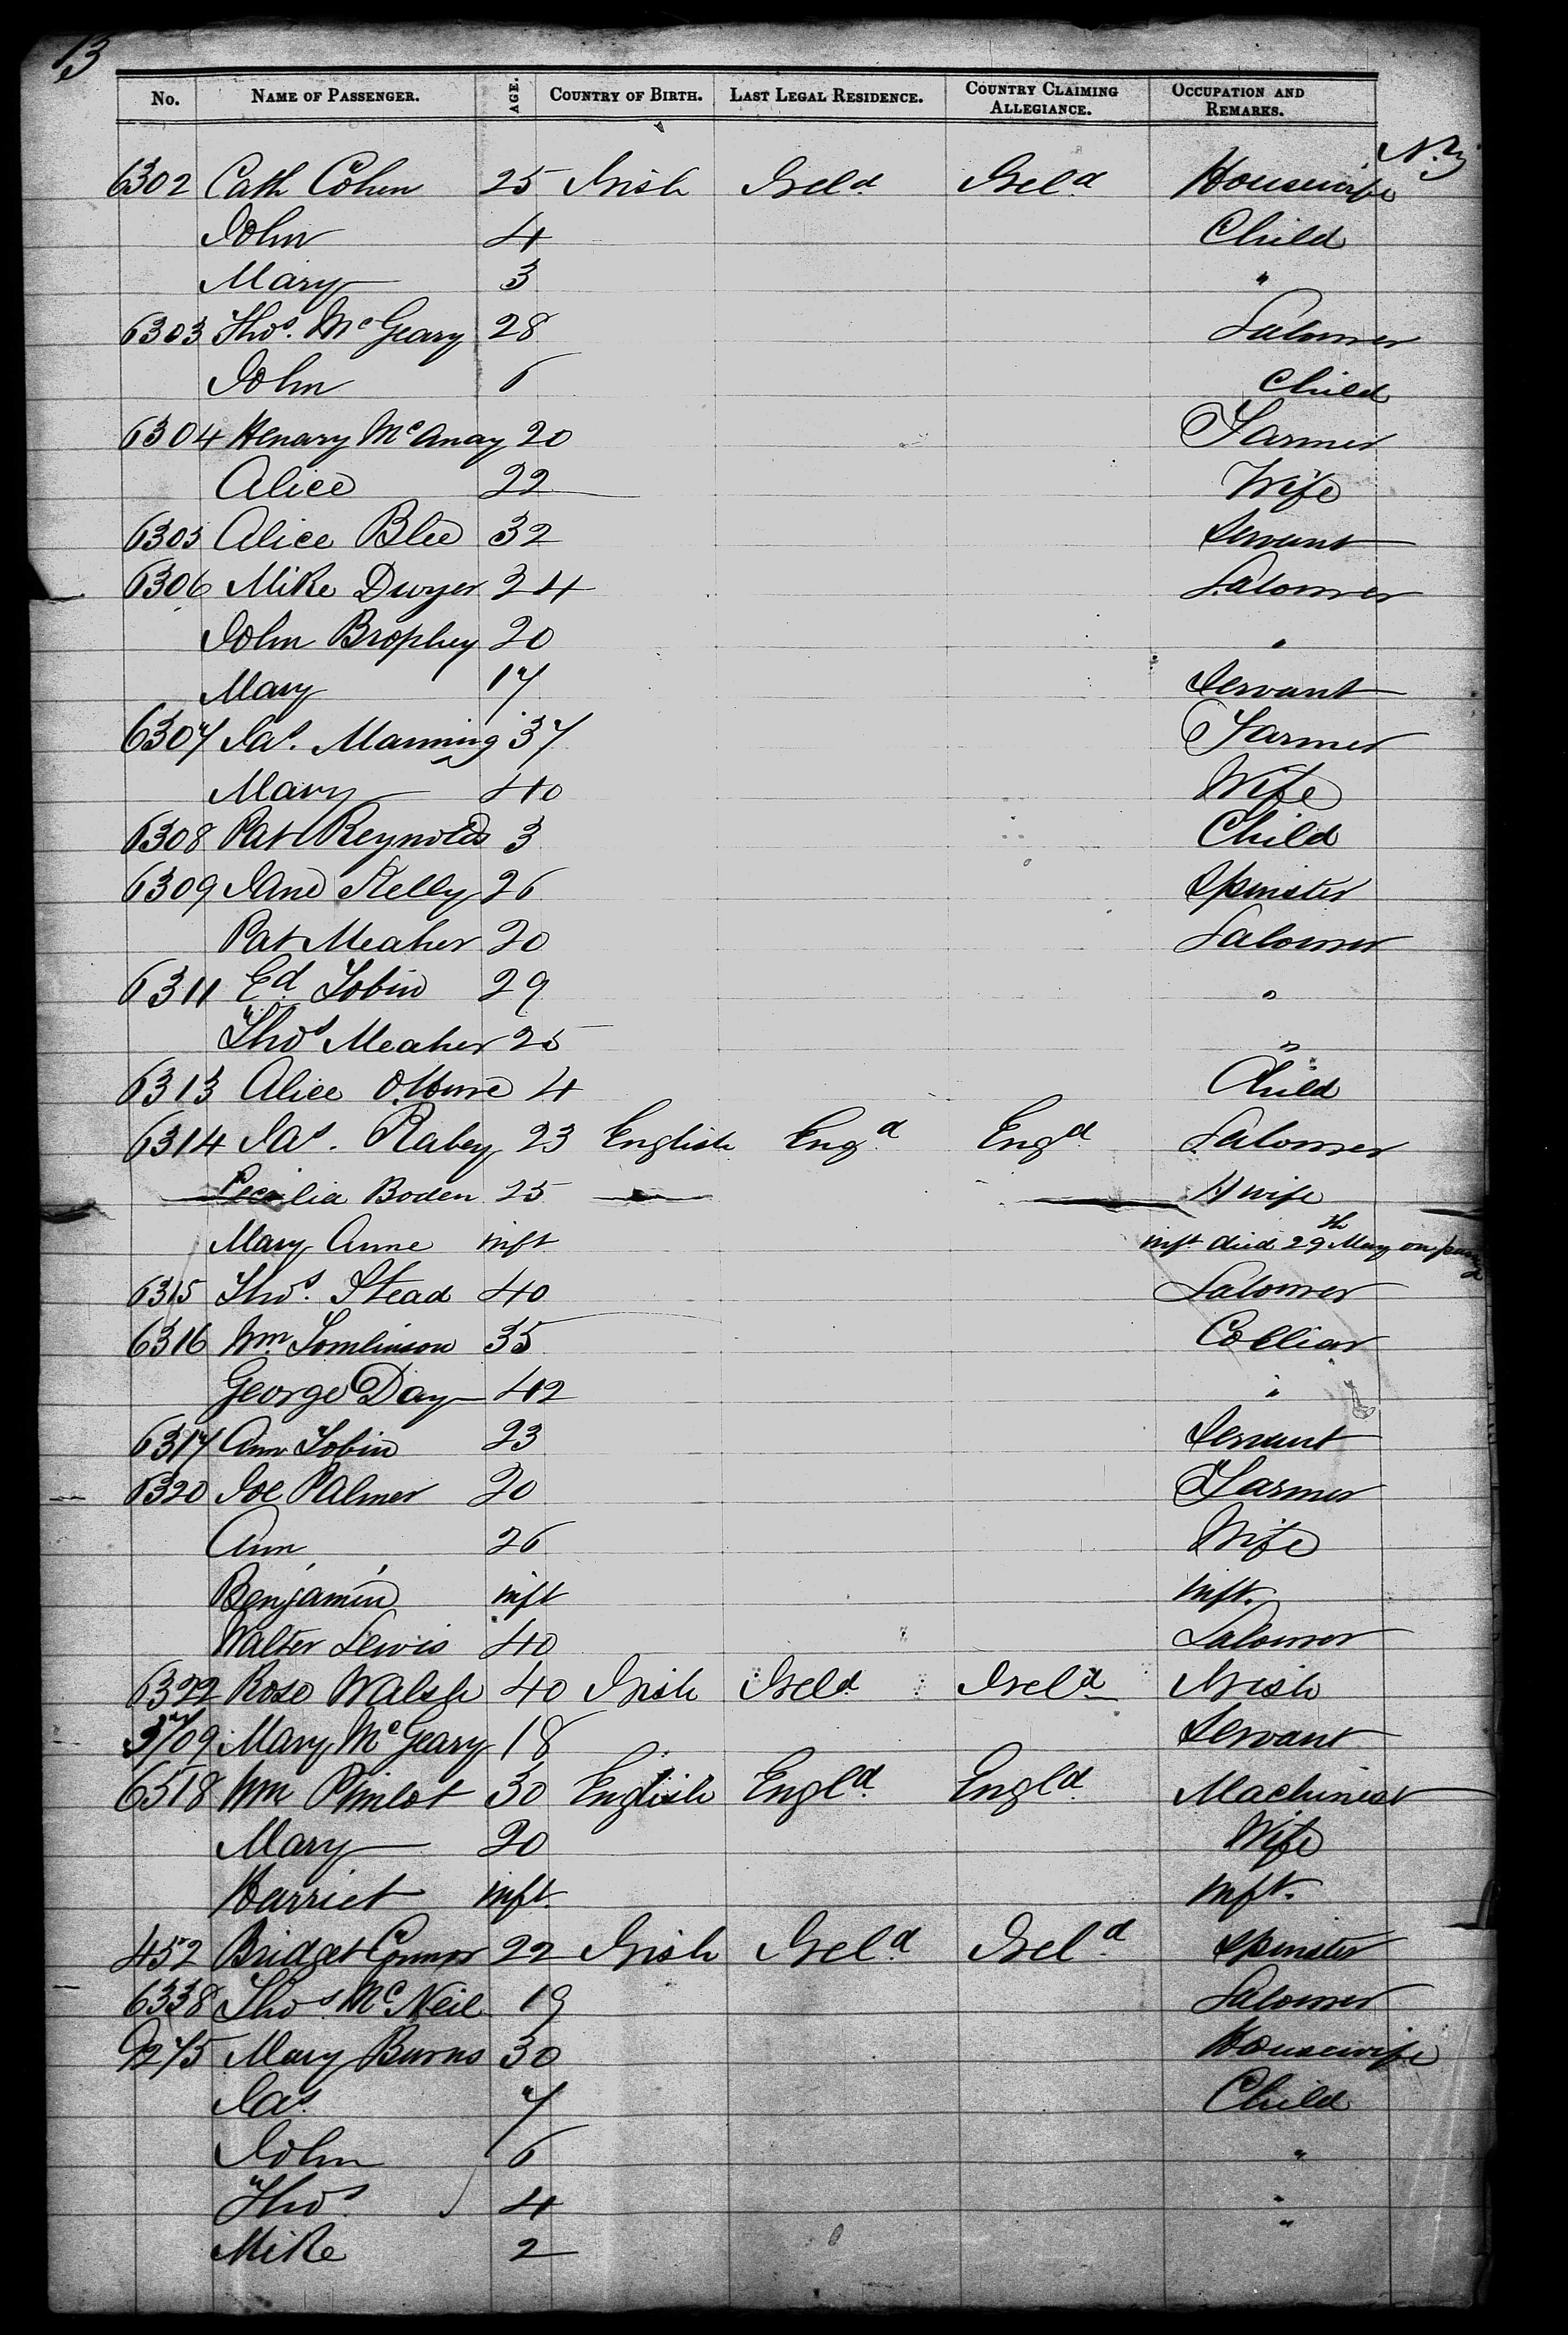 13
No. NAME OF PASSENGER. AGE. COUNTRY OF BIRTH. LAST LEGAL RESIDENCE. COUNTRY CLAIMING ALLEGIANCE. OCCUPATION AND REMARKS.
6302 Cath Cohen 25 Irish Ireld Ireld Housewife
John 4 Child
Mary 3 "
6303 Thos. McGeary 28 Labourer
John 6 Child
6304 Henary McAnay 20 Farmer
Alice 22 Wife
6305 Alice Blee 32 Servant
6306 Mike Dwyer 24 Labourer
John Brophey 20 "
Mary 17 Servant
6307 Jas. Manning 37 Farmer
Mary 40 Wife
6308 Pat Reynolds 3 Child
6309 Jane Kelly 26 Spinster
Pat Meaher 20 Labourer
6311 Ed. Tobin 29 "
Thos Meaher 25 "
6313 Alice 4 Child
6314 Jas. Rabey 23 English Engd Engd Labourer
Cecilia Boden 25 H wife
Mary Anne inft inft died 29th May on
6315 Thos. Stead 40 Labourer
6316 Wm. Tomlinson 35 Collier
George Day 42 "
6317 Ann Tobin 23 Servant
6320 Joe Palmer 20 Farmer
Ann 26 Wife
Benjamin inft inft.
Walter Lewis 40 Labourer
6322 Rose Walsh 40 Irish Ireld Ireld Irish
3709 Mary McGeary 18 Servant
6318 Wm 30 English Engld. Engld. Machinist
Mary 20 Wife
Harriet inft. inft.
452 Bridget Connor 22 Irish Ireld Ireld. Spinster
6338 Thos McNeil 19 Labourer
9275 Mary Burns 30 Housewife
Jas. 7 Child
John 6 "
Thos. 4 "
Mike 2 "